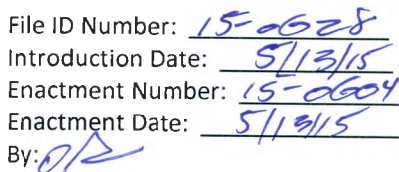 File ID Number: 15-0628
Introduction Date: 5/13/15
Enactment Number: 15-0604
Enactment Date: 5/13/15
By: